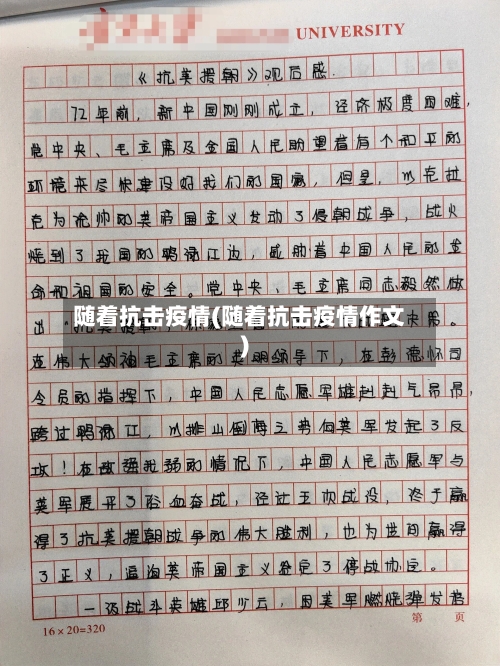 UNIVERSITY
《抗美援朝》观后感
72年前，新中国刚刚成立，经济极度困难，
党中央、毛主席及全国人民盼望着有个和平的
环境来尽快建设好我们的国家，但是，以克拉
克为统帅的美帝国主义发动了侵朝战争，战火
烧到了我国的鸭渌江边，威胁着中国人民的生
命和祖国的安全。党中央、毛主席同志毅然做
出
随着抗击疫情(随着抗击疫情作文
)
在伟大领袖毛主席的英明领导下，在彭德怀司
令员的指挥下，中国人民志愿军雄赳赳气昂昂，
跨过鸭渌江，以排山倒海之势向美军发起了反
攻！在敌强我弱的情况下，中国人民志愿军与
美军展开了浴血奋战，经过五次战役，终于赢
得了抗美援朝战争的伟大胜利，也为世间赢得
了正义，逼迫美帝国主义签定了停战协定。
一级战斗英雄邱少云，因美军燃烧弹发着
16×20=320
第 页